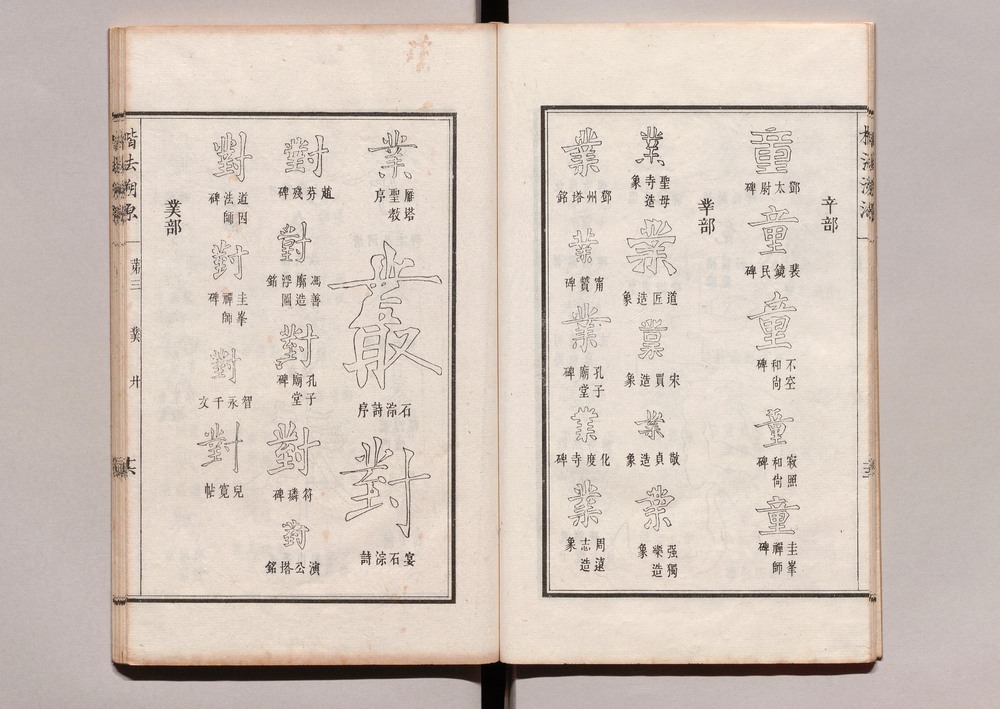 辛部
童 鄧太尉碑
童 裴鏡民碑
童 不空和尚碑
童 寂照和尚碑
童 圭峯禪師碑
丵部
業 聖母寺造象
業 道匠造象
業 宋買造象
業 敬貞造象
業 强獨樂造象
業 鄧州塔銘
業 甯贙碑
業 孔子廟堂碑
業 化度寺碑
業 周遠志造象
業 雁塔聖教序
叢 石淙詩序
對 宴石淙詩
對 趙芬殘碑
對 馮善廓造浮圖銘
對 孔子廟堂碑
對 符璘碑
對 演公塔銘
對 道因法師碑
對 圭峯禪師碑
對 智永千文
對 兒寬帖
菐部
楷法溯源 第三 菐 廾